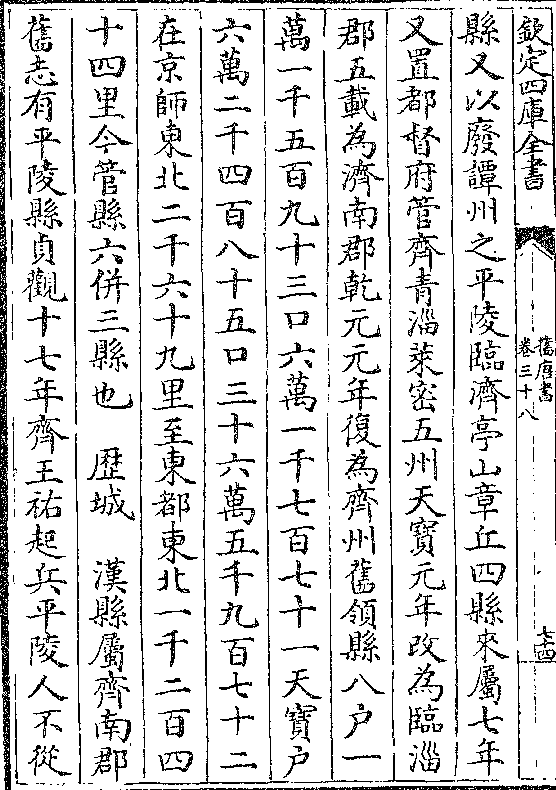 欽定四庫全書
舊唐書
卷三十八
七十四
縣又以廢譚州之平陵臨濟亭山章丘四縣來屬七年
又置都督府管齊青淄萊密五州天寶元年改為臨淄
郡五載為濟南郡乾元元年復為齊州舊領縣八户一
萬一千五百九十三口六萬一千七百七十一天寶户
六萬二千四百八十五口三十六萬五千九百七十二
在京師東北二千六十九里至東都東北一千二百四
十四里今管縣六併三縣也 歴城 漢縣屬齊南郡
舊志有平陵縣貞觀十七年齊王祐起兵平陵人不從